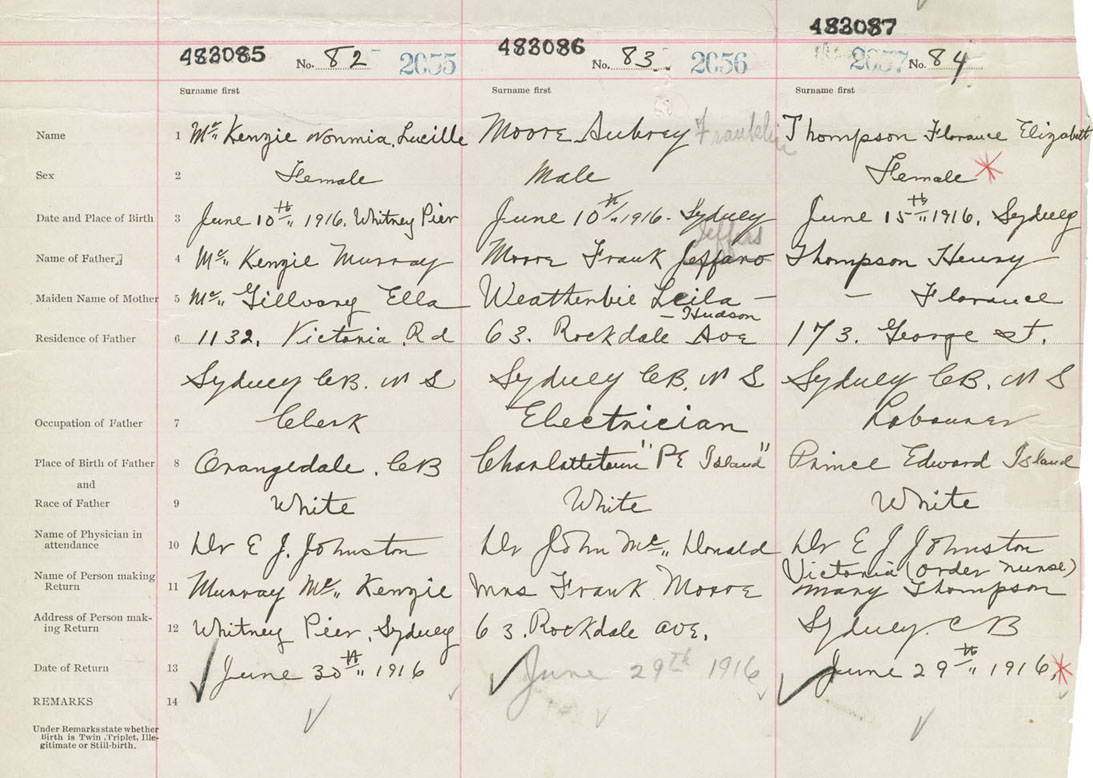 483085 483086 483087
No. 82 2655 No. 83 2656 2657 No. 84
Surname first Surname first Surname first
Name 1 Mc„ Kenzie Nonmia, Lucille Moore Aubrey Franklin Thompson Florance Elizabeth
Sex 2 Female Male Female *
Date and Place of Birth 3 June 10th„ 1916. Whitney Pier June 10th„ 1916 - Sydney June 15th„ 1916, Sydney
Jeffers
Name of Father 4 Mc„ Kenzie Murray Moore Frank Jeffaro Thompson Henry
Maiden Name of Mother 5 Mc„ Gillvary Ella Weatherbie Leila - - Florance
- Hudson
Residence of Father 6 1132, Victoria Rd 63. Rockdale Ave 173. George St.
Sydney CB. N S Sydney CB. N S Sydney CB. N S
Occupation of Father 7 Clerk Electrician Labourer
Place of Birth of Father 8 Orangedale, CB Charlottetown "PE Island" Prince Edward Island
and
Race of Father 9 White White White
Name of Physician in
attendance 10 Dr E J. Johnston Dr John Mc„ Donald Dr E J Johnston
Victoria (order nurse)
Name of Person making
Return 11 Murray Mc„ Kenzie Mrs Frank Moore Mary Thompson
Address of Person mak-
ing Return 12 Whitney Pier, Sydney 63. Rockdale Ave. Sydney. CB
Date of Return 13 June 30th„ 1916 June 29th 1916 June 29th„ 1916. *
REMARKS 14
Under Remarks state whether
Birth is Twin, Triplet, Ille-
gitimate or Still-birth.